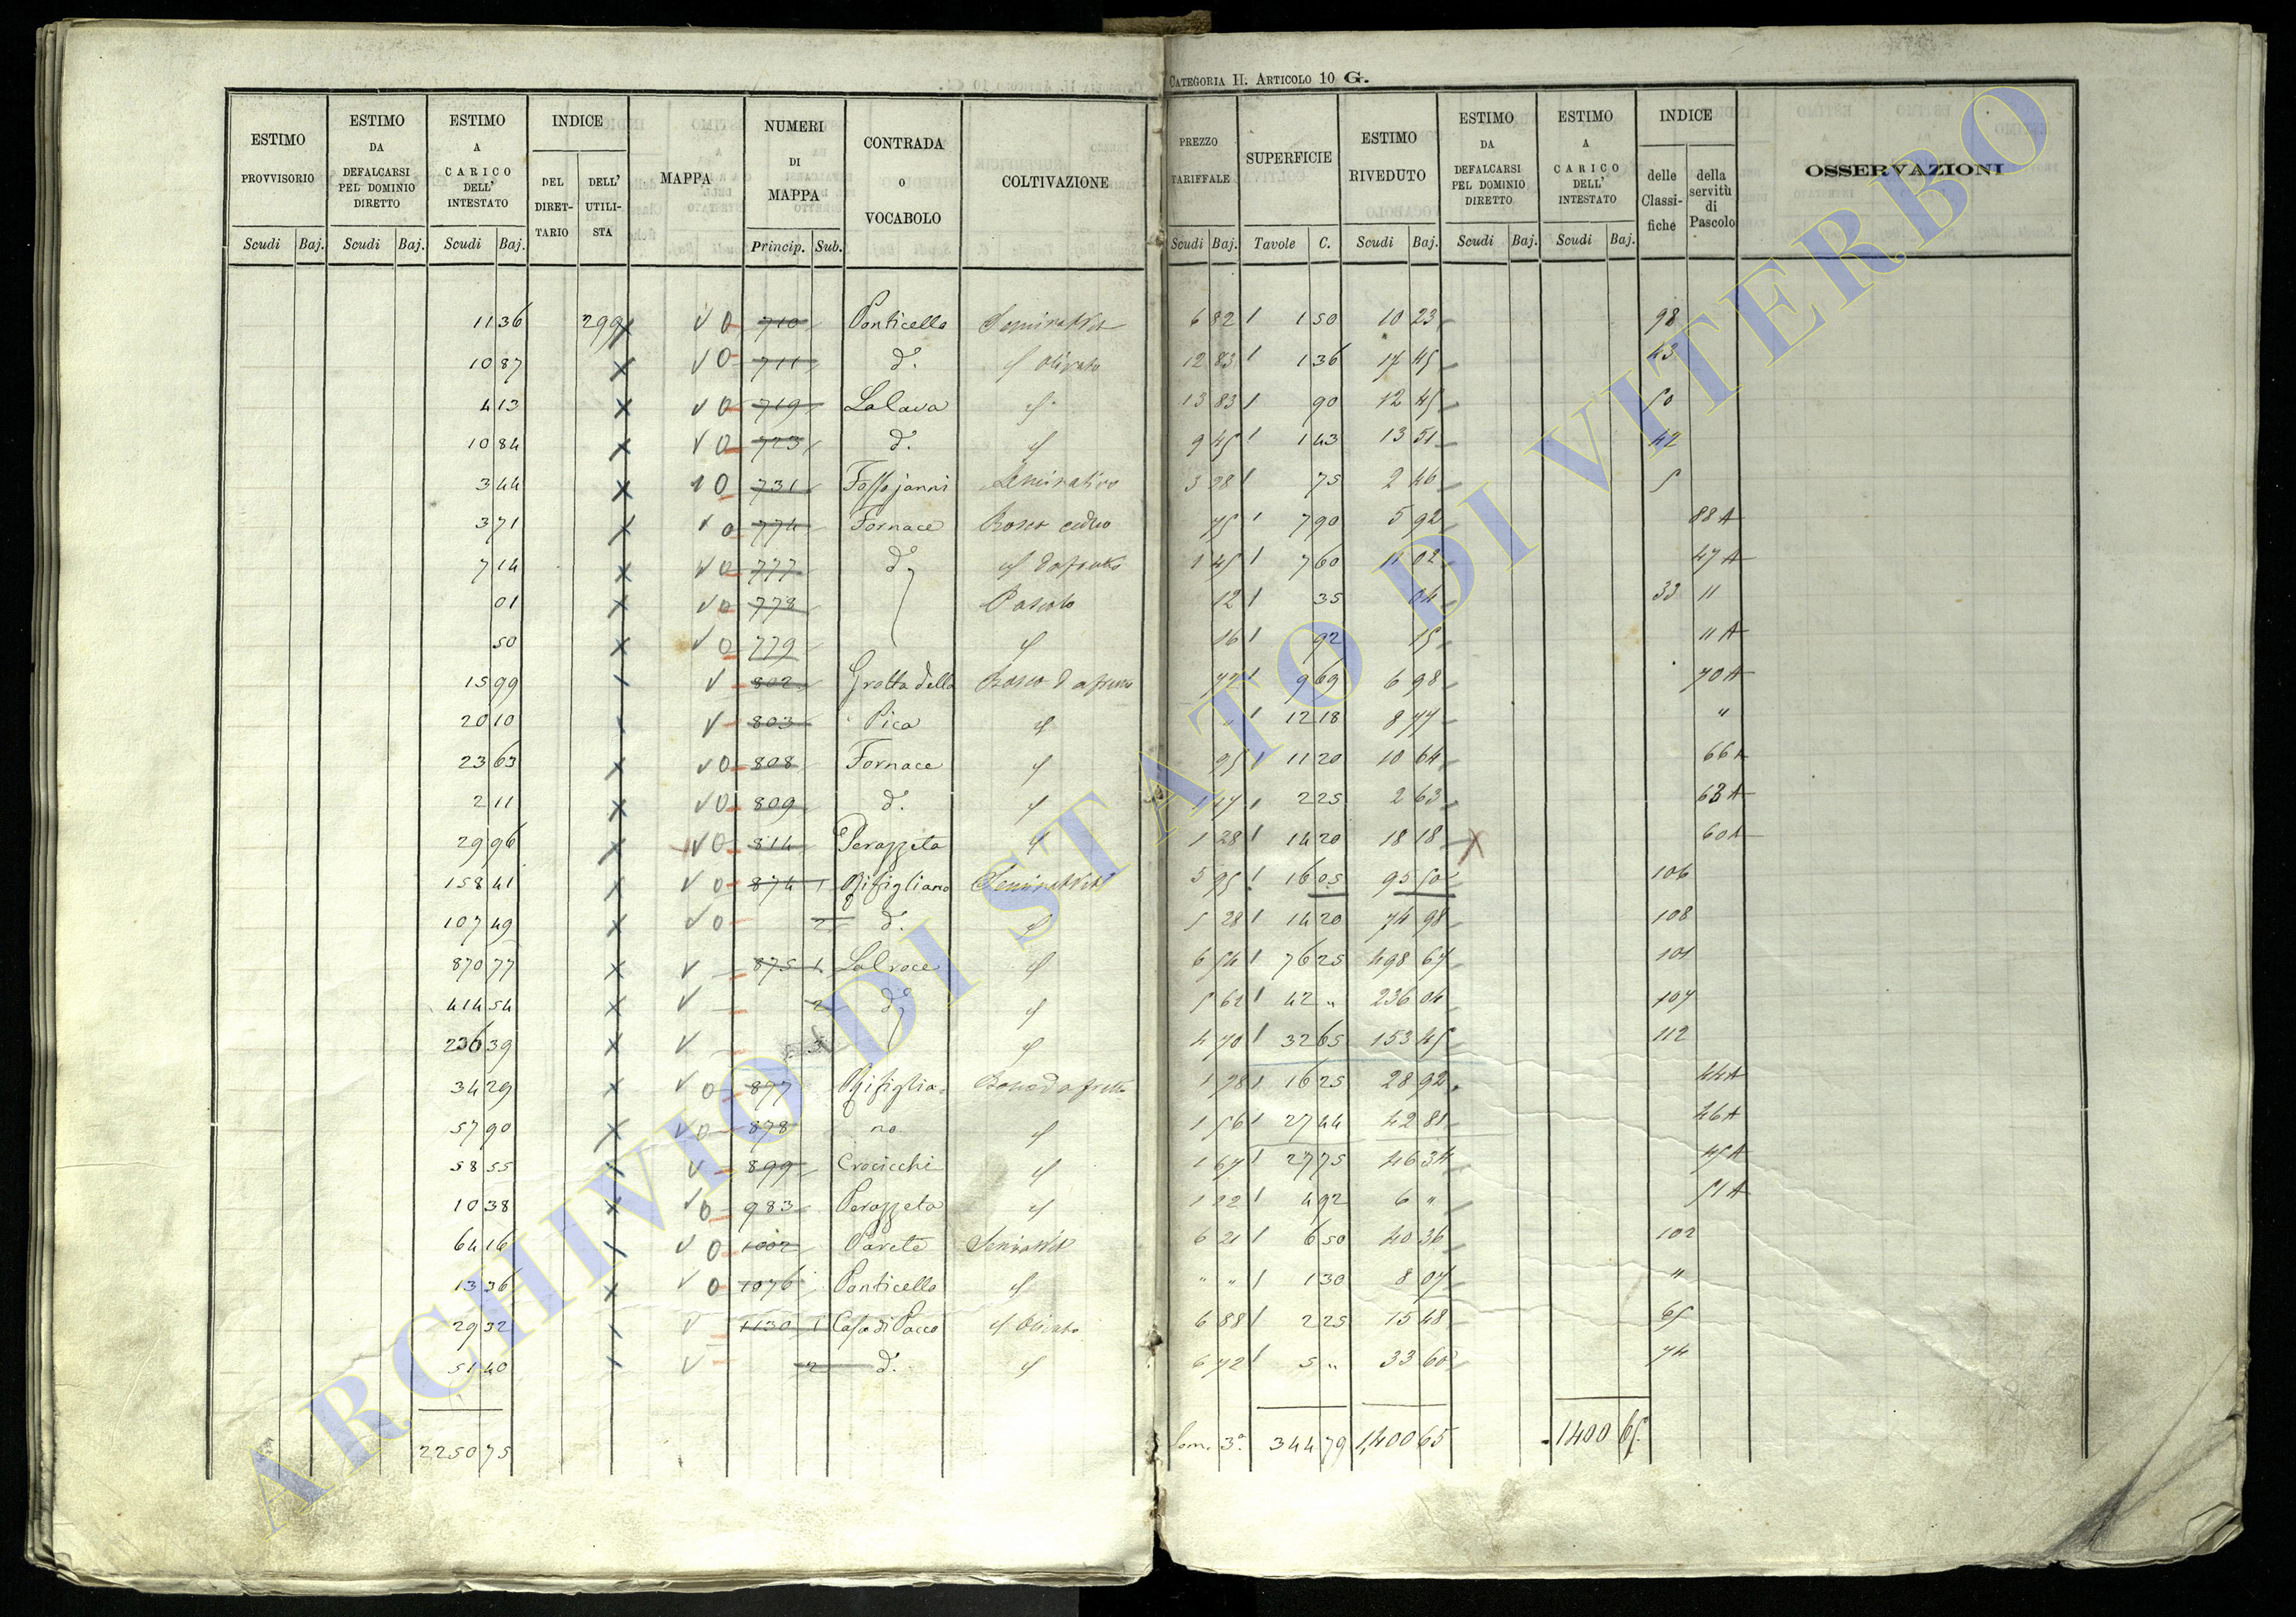 CATEGORIA II. ARTICOLO 10 G.
ESTIMO PROVVISORIO Scudi Baj.
ESTIMO DA DEFALCARSI PEL DOMINIO DIRETTO Scudi Baj.
ESTIMO A CARICO DELL' INTESTATO Scudi Baj.
INDICE DEL DIRETTARIO DELL' UTILISTA
MAPPA
NUMERI DI MAPPA Princip. Sub.
CONTRADA O VOCABOLO
COLTIVAZIONE
PREZZO TARIFFALE Scudi Baj.
SUPERFICIE Tavole C.
ESTIMO RIVEDUTO Scudi Baj.
ESTIMO DA DEFALCARSI PEL DOMINIO DIRETTO Scudi Baj.
ESTIMO A CARICO DELL' INTESTATO Scudi Baj.
INDICE delle Classifiche della servitù di Pascolo
OSSERVAZIONI
11 36 299 x V 0 710 Ponticello 6 82 1 50 10 23 98
10 87 x V 0 711 d.° Olivato 12 83 1 36 17 45 43
4 13 x V 0 719 La Cava 13 83 90 12 45 50
10 84 x V 0 723 d.° 9 45 1 43 13 51 42
3 44 x V 0 731 Fosso janni Seminativo 3 28 75 2 46 5
3 71 x V 0 774 Fornace Bosco ceduo 75 7 90 5 92 88 A
7 14 x V 0 777 d.° 1 45 7 60 11 02 47 A
01 x V 0 778 Pascolo 12 35 04 33 11
50 x V 0 779 16 92 15 11 A
15 99 V 802 Grotta della 72 9 69 6 98 70 A
20 10 V 803 Pica " 12 18 8 77 "
23 63 x V 0 808 Fornace 95 11 20 10 64 66 A
2 11 x V 0 809 d.° 1 17 2 25 2 63 63 A
29 96 x V 0 814 Perazzeta 1 28 14 20 18 18 60 A
158 41 x V 0 874 1 Rifigliano 5 95 16 05 95 50 106
107 49 x V 0 2 d.° 5 28 14 20 74 98 108
870 77 x V 875 1 La Croce 6 54 76 25 498 67 101
414 54 x V 2 d.° 5 62 42 " 236 04 107
236 39 x V 3 4 70 32 65 153 45 112
34 29 x V 0 877 Rifiglia- 1 78 16 25 28 92 44 A
57 90 x V 0 878 no 1 56 27 44 42 81 46 A
58 55 V 899 Crocicchi 1 67 27 75 46 34 45 A
10 38 x V 0 983 Perazzeta 1 22 4 92 6 " 51 A
64 16 V 0 1002 Parete 6 21 6 50 40 36 102
13 36 x V 0 1076 Ponticello " " 1 30 8 07 "
29 32 V 1130 1 Casa di Pacco Olivato 6 88 2 25 15 48 65
51 40 V 2 d.° 6 72 5 " 33 60 74
2250 75 Som. 3.a 344 79 1,400 65 1400 65
ARCHIVIO DI STATO DI VITERBO